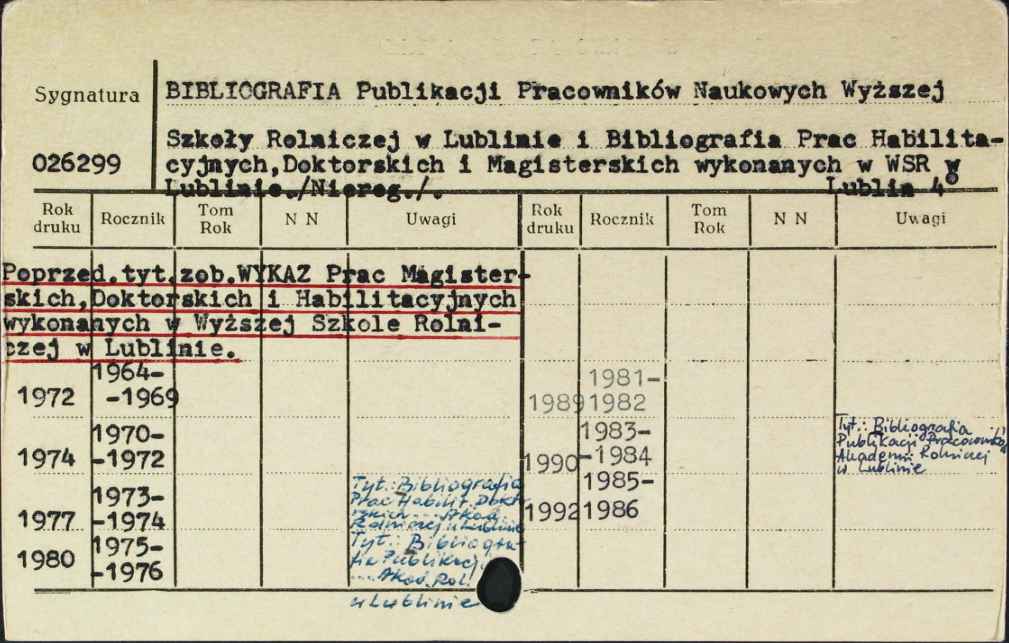 Sygnatura
026299
BIBLIOGRAFIA Publikacji Pracowników Naukowych Wyższej
Szkoły Rolniczej w Lublinie i Bibliografia Prac Habilita-
cyjnych,Doktorskich i Magisterskich wykonanych w WSR w
Lublinie./Niereg./. Lublin 4°
Rok druku Rocznik Tom Rok N N Uwagi Rok druku Rocznik Tom Rok N N Uwagi
Poprzed.tyt.zob.WYKAZ Prac Magister-
skich,Doktorskich i Habilitacyjnych
wykonanych w Wyższej Szkole Rolni-
czej w Lublinie.
1972 1964-
-1969
1974 1970-
-1972
1977 1973-
-1974
Tyt.: Bibliografia
Prac Habilit. Dokt-
rskich ... Akad.
Rolniczej w Lublinie
1980 1975-
-1976
Tyt.: Bibliogra-
fia Publikacji
... Akad. Rol.
w Lublinie
1989 1981-
1982
1990 1983-
-1984
Tyt.: Bibliografia
Publikacji
Akademii Rolniczej
w Lublinie
1992 1985-
1986